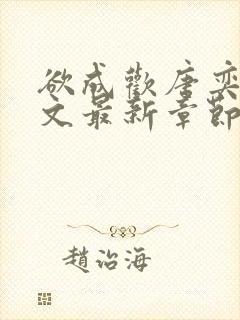 欲成歡唐奕
文最新章節
趙治海